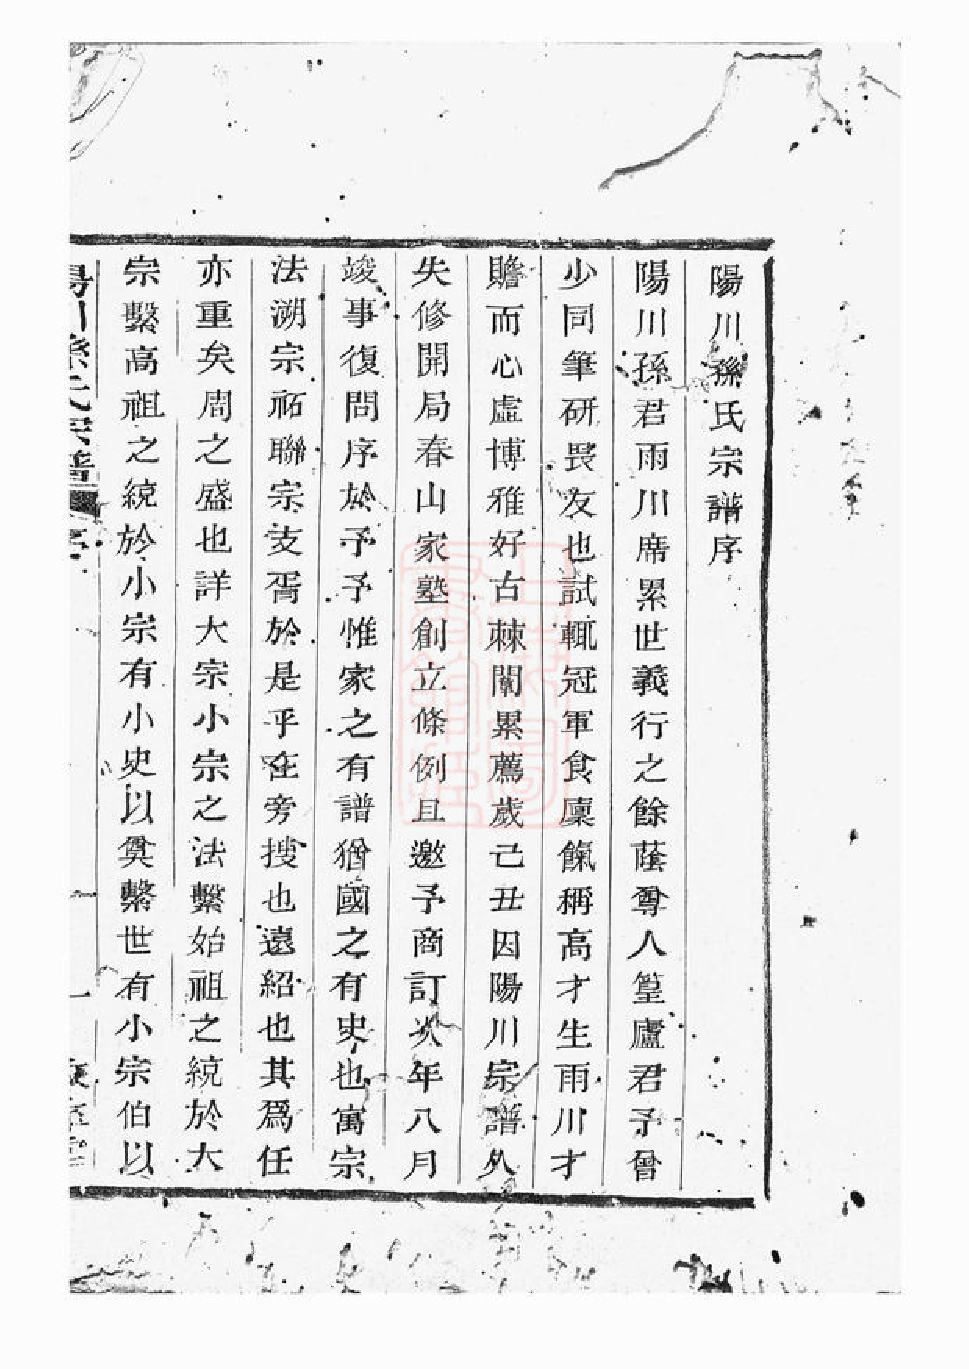 陽川孫氏宗譜序
陽川孫君雨川席累世義行之餘蔭尊人篁廬君予曾
少同筆硏畏友也試輒冠軍食廩餼稱高才生雨川才
贍而心虛博雅好古棘闈累薦歲己丑因陽川宗譜久
失修開局春山家塾創立條例且邀予商訂次年八月
竣事復問序於予予惟家之有譜猶國之有史也寓宗
法溯宗祏聯宗支胥於是乎在旁搜也遠紹也其爲任
亦重矣周之盛也詳大宗小宗之法繫始祖之統於大
宗繫高祖之統於小宗有小史以奠繫世有小宗伯以
陽川孫氏宗譜 序 一
上海圖書館藏